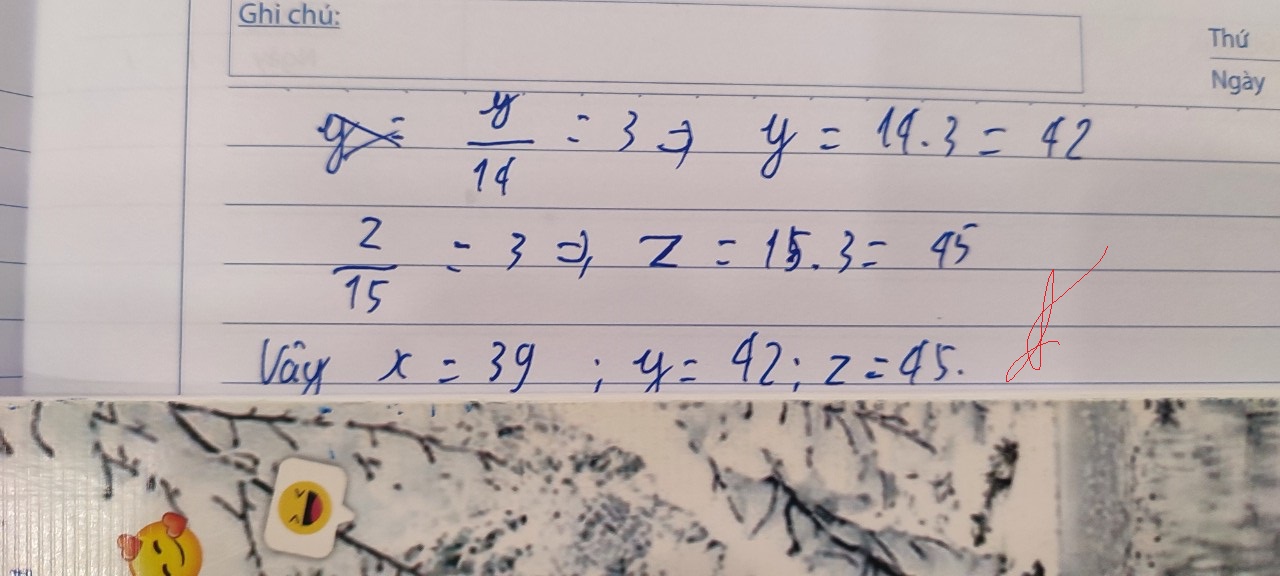 Ghi chú:
Thứ
Ngày
y/14 = 3 => y = 14.3 = 42
z/15 = 3 => z = 15.3 = 45
Vậy x = 39 ; y = 42 ; z = 45.